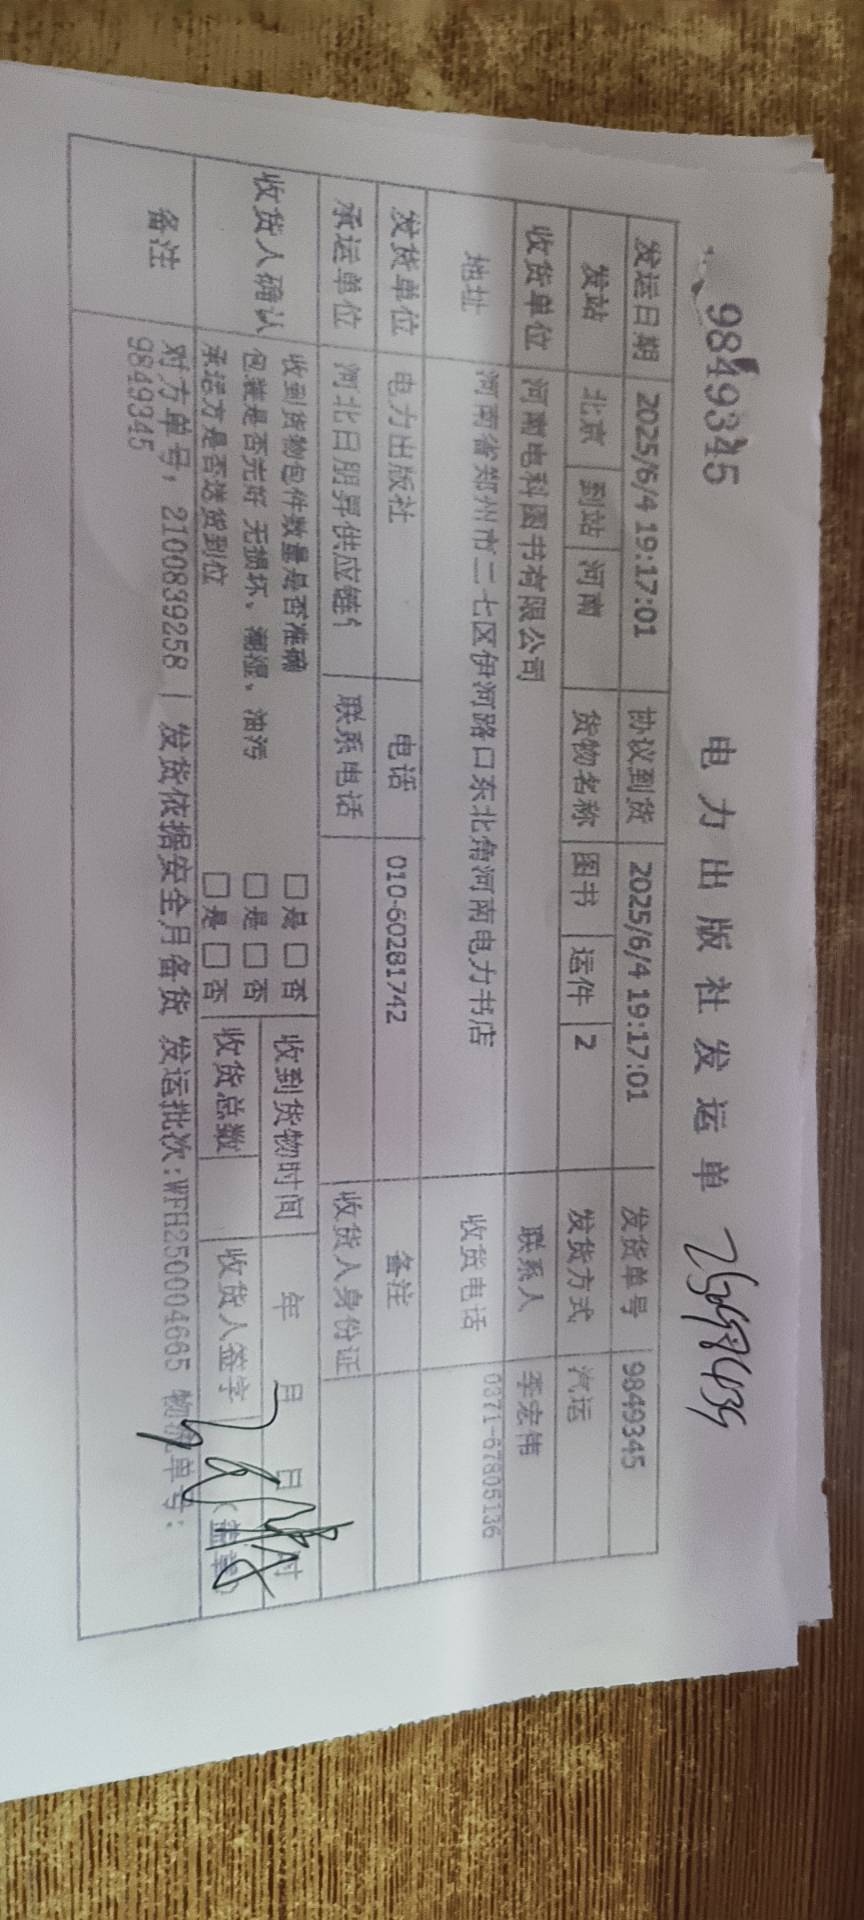 9849345
电力出版社发运单
发运日期 2025/6/4 19:17:01 协议到货 2025/6/4 19:17:01 发货单号 9849345
发站 北京 到站 河南 货物名称 图书 运件 2 发货方式 汽运
收货单位 河南电科图书有限公司 联系人 李宏伟
地址 河南省郑州市二七区伊河路口东北角河南电力书店 收货电话 0371-67905136
发货单位 电力出版社 电话 010-60281742 备注
承运单位 河北日朋昇供应链 联系电话 收货人身份证
收货人确认 收到货物包件数量是否准确 □是□否 收到货物时间 年 月 日 时
包装是否完好 无损坏、潮湿、油污 □是□否
承运方是否送货到位 □是□否 收货总数 收货人签字 (盖章)
备注 对方单号,2100839258 | 发货依据安全月备货 发运批次:WFH250004665 物流单号:
9849345